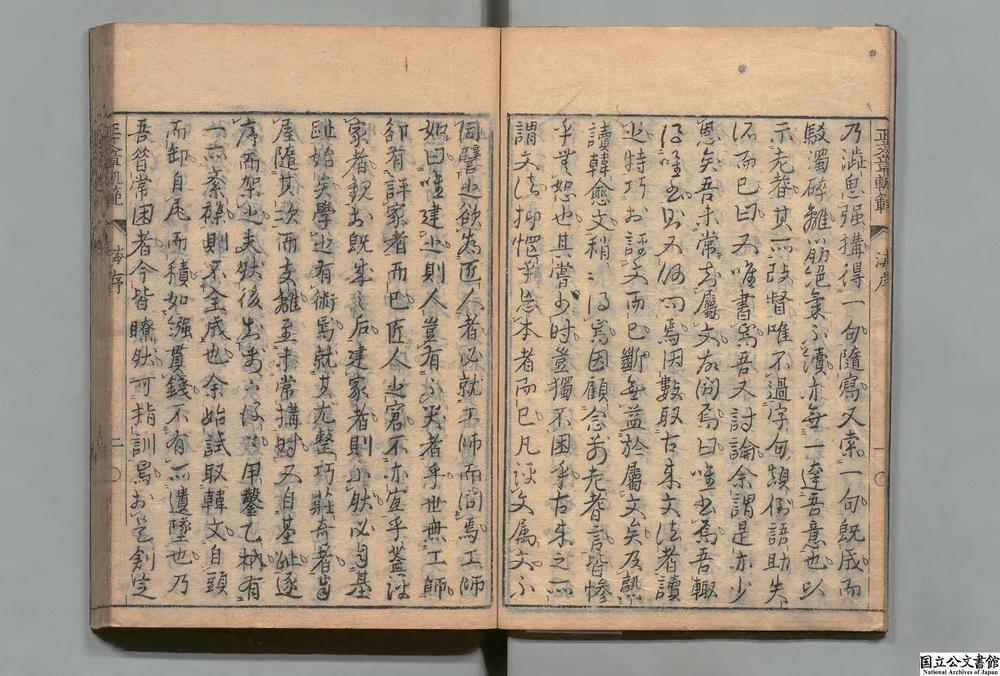 乃澁思强搆得一句隨寫又索一句既成而
駁濁碎離筋絕氣不續亦每一達吾意也以
示先耆其所改督唯不過字句顛倒語助失
所而已曰又唯書焉吾又討論余謂是亦少
恩矣吾未常知屬文故問焉曰唯書焉吾輙
得唯書則又何問焉因數取古來文法者讀
之特巧於評文而已斷無益於屬文矣及熟
讀韓愈文稍〻得焉因顧念前先耆言皆慘
乎無恕也其嘗少時豈獨不困乎古來之所
謂文法抑乎忘本者而已凡評文属文不
同譬之欲為匠人者必就工師而問焉工師
如曰唯建之則人豈有不笑者乎世無工師
卻有評家者而已匠人之窘不亦宜乎蓋評
家者觀於既成之后建家者則不然必自基
趾始矣學之有術焉就其尤整巧莊奇者自
屋隨其次而支離至未常搆時又自基趾逐
序而架之夫然後甲鑿乙枘有
一所紊襍則不全成也余始試取韓文自頭
而卸自尾而積如繦貫錢不有所遺墜也乃
吾曾常困者今皆瞭然可指訓焉於是創定
二
国立公文書館
National Archives of Japan